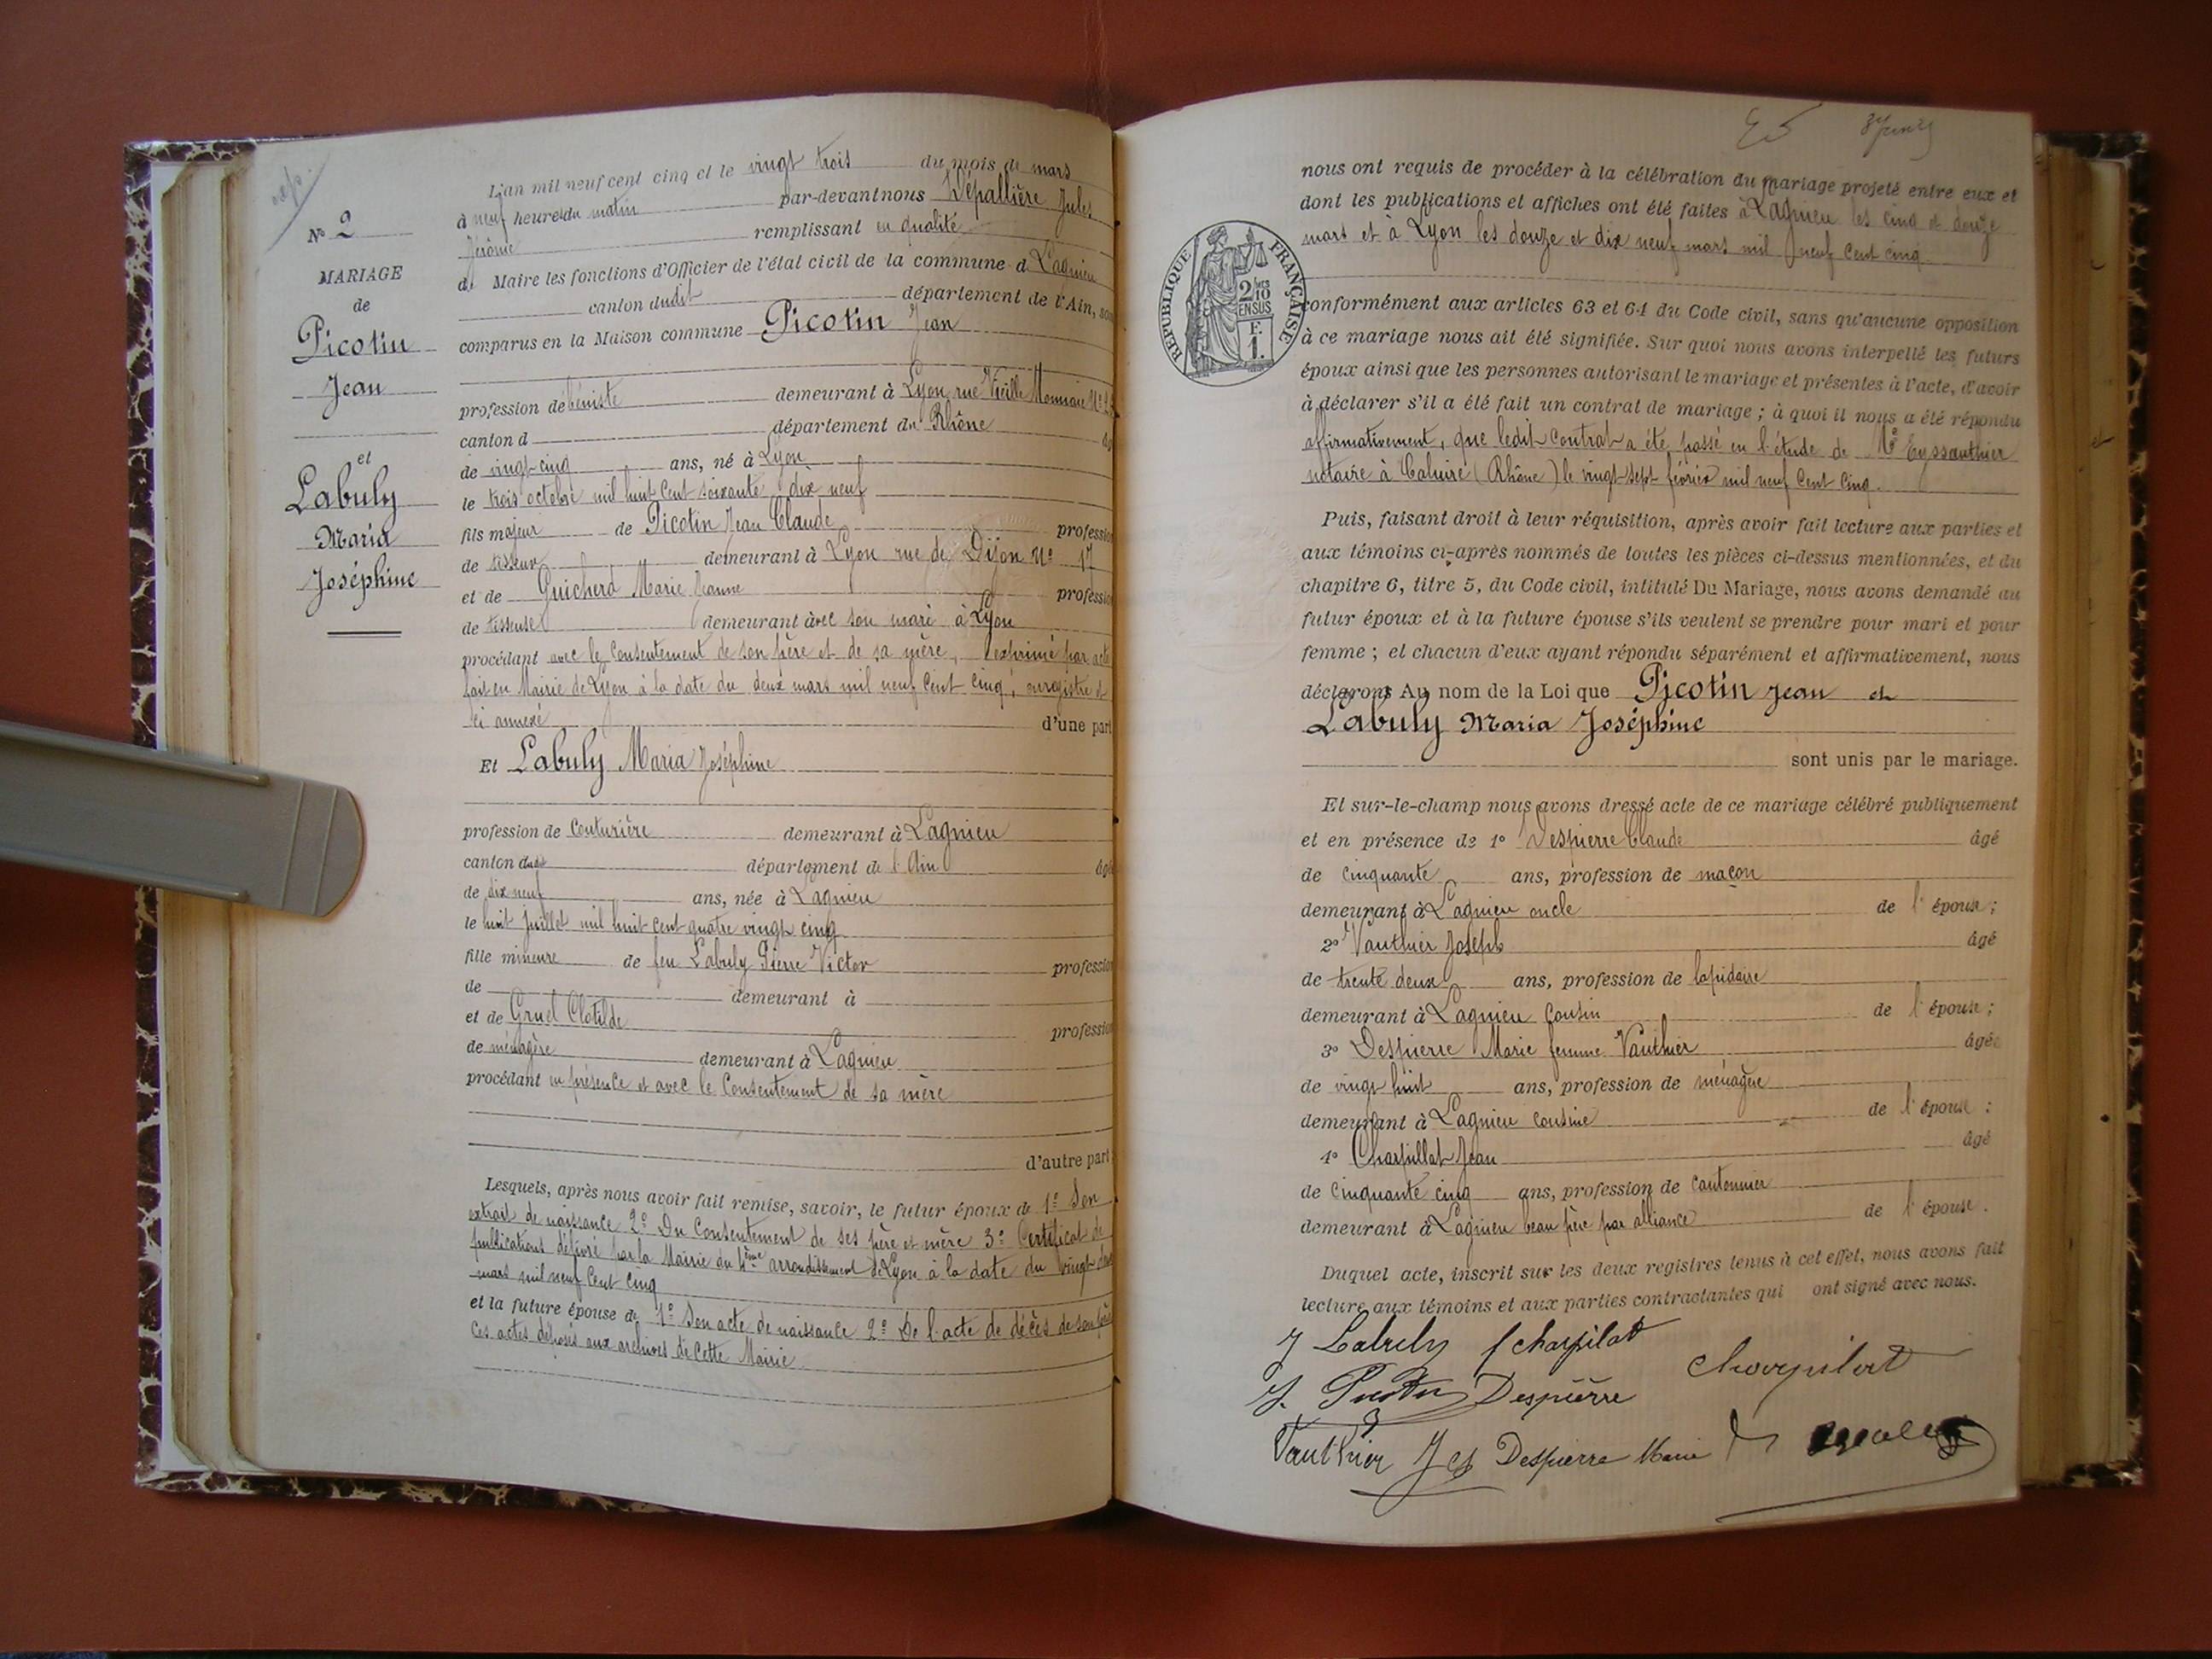 N° 2
MARIAGE
de
Picotin
Jean
et
Labuly
Maria
Joséphine
L'an mil neuf cent cinq et le vingt trois du mois de mars
à neuf heures du matin par-devant nous Dépallière Jules
Jérôme remplissant en qualité
de Maire les fonctions d'Officier de l'état civil de la commune de Lagnieu
canton dudit département de l'Ain, sont
comparus en la Maison commune Picotin Jean
profession de ébéniste demeurant à Lyon, rue Vieille Monnaie N°
canton d département du Rhône
de vingt cinq ans, né à Lyon
le trois octobre mil huit cent soixante dix neuf
fils majeur de Picotin Jean Claude profession
de tisseur demeurant à Lyon rue de Dijon N° 17
et de Guicherd Marie Jeanne profession
de tisseuse demeurant avec son mari à Lyon
procédant avec le consentement de son père et de sa mère, exprimé par acte
fait en Mairie de Lyon à la date du deux mars mil neuf cent cinq, enregistré et
ci annexé d'une part
Et Labuly Maria Joséphine
profession de couturière demeurant à Lagnieu
canton dudit département de l'Ain âgée
de dix neuf ans, née à Lagnieu
le huit juillet mil huit cent quatre vingt cinq
fille mineure de feu Labuly Pierre Victor profession
de demeurant à
et de Gruel Clotilde profession
de ménagère demeurant à Lagnieu
procédant en présence et avec le consentement de sa mère
d'autre part
Lesquels, après nous avoir fait remise, savoir, le futur époux de 1° Son
extrait de naissance 2° Du consentement de ses père et mère 3° Certificat de
publications délivré par la Mairie du 4ème arrondissement de Lyon à la date du vingt deux
mars mil neuf cent cinq
et la future épouse de 1° Son acte de naissance 2° De l'acte de décès de son père
Ces actes déposés aux archives de cette Mairie
RÉPUBLIQUE FRANÇAISE
2/10
EN SUS
F.
1.
nous ont requis de procéder à la célébration du mariage projeté entre eux et
dont les publications et affiches ont été faites à Lagnieu les cinq et douze
mars et à Lyon les douze et dix neuf mars mil neuf cent cinq
conformément aux articles 63 et 64 du Code civil, sans qu'aucune opposition
à ce mariage nous ait été signifiée. Sur quoi nous avons interpellé les futurs
époux ainsi que les personnes autorisant le mariage et présentes à l'acte, d'avoir
à déclarer s'il a été fait un contrat de mariage ; à quoi il nous a été répondu
affirmativement, que ledit contrat a été passé en l'étude de Me Eyssauthier
notaire à Caluire (Rhône) le vingt-sept février mil neuf cent cinq.
Puis, faisant droit à leur réquisition, après avoir fait lecture aux parties et
aux témoins ci-après nommés de toutes les pièces ci-dessus mentionnées, et du
chapitre 6, titre 5, du Code civil, intitulé Du Mariage, nous avons demandé au
futur époux et à la future épouse s'ils veulent se prendre pour mari et pour
femme ; et chacun d'eux ayant répondu séparément et affirmativement, nous
déclarons Au nom de la Loi que Picotin Jean et
Labuly Maria Joséphine
sont unis par le mariage.
Et sur-le-champ nous avons dressé acte de ce mariage célébré publiquement
et en présence de 1° Despierre Claude âgé
de cinquante ans, profession de maçon
demeurant à Lagnieu oncle de l'épouse ;
2° Vauthier Joseph âgé
de trente deux ans, profession de lapidaire
demeurant à Lagnieu cousin de l'épouse ;
3° Despierre Marie femme Vauthier âgée
de vingt huit ans, profession de ménagère
demeurant à Lagnieu cousine de l'épouse ;
4° Charpillat Jean âgé
de cinquante cinq ans, profession de cantonnier
demeurant à Lagnieu beau père par alliance de l'épouse.
Duquel acte, inscrit sur les deux registres tenus à cet effet, nous avons fait
lecture aux témoins et aux parties contractantes qui ont signé avec nous.
J Labuly f charpilat
charpilat
J. Picotin Despierre
Vauthier Despierre Marie